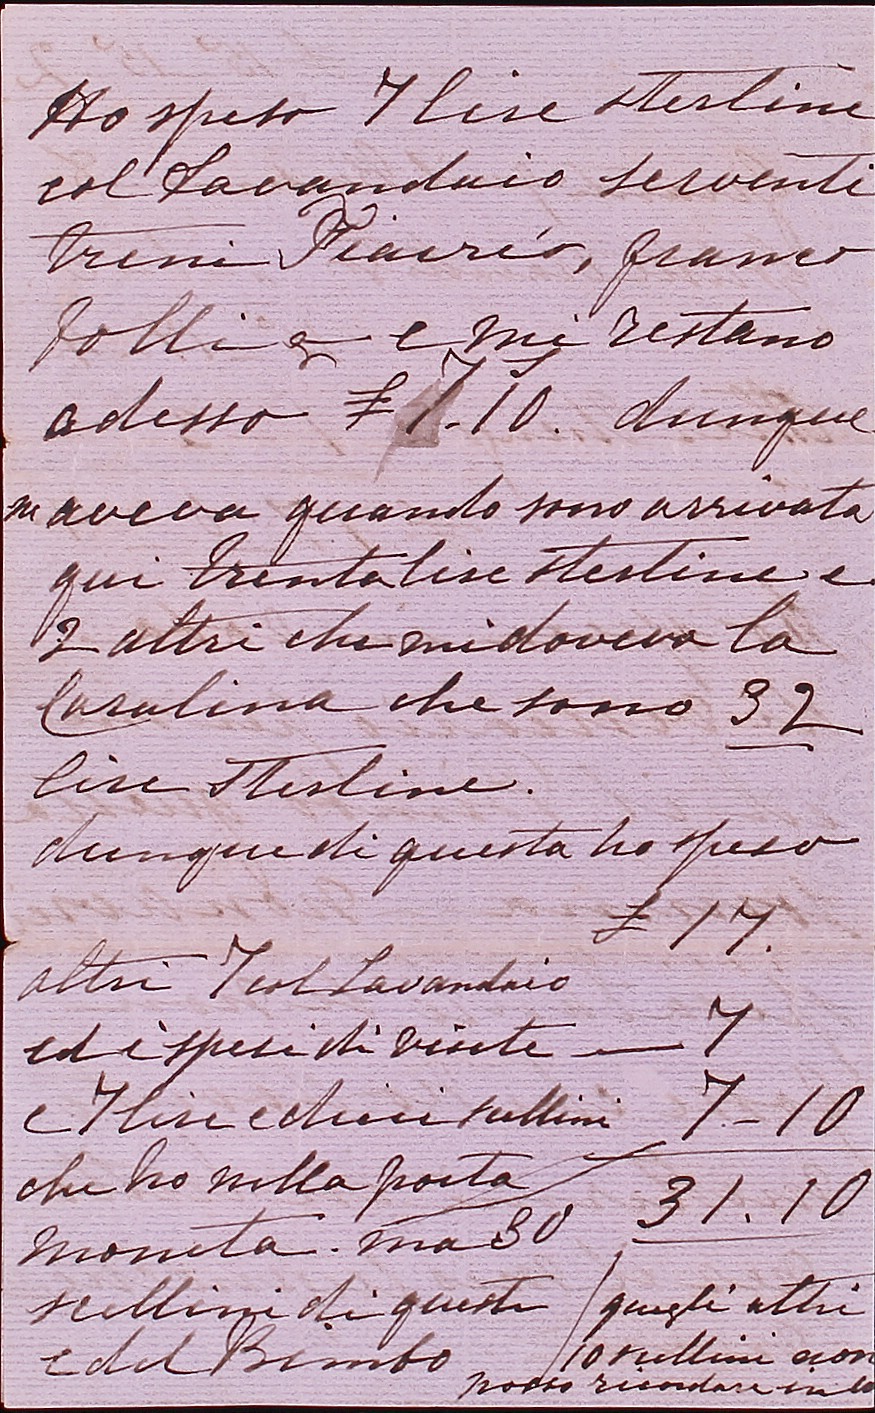 Ho speso 7 lire sterline
col Lavandaio serventi
treni Fiacres, franco
bolli e mi restano
adesso £ 7.10. dunque
aveva quando sono arrivata
qui trenta lire sterline e
2 altri che mi doveva la
Carolina che sono 32
lire sterline.
dunque di questa ho speso
£ 17.
altri 7 col Lavandaio
ed i spesi di viste — 7
e 7 lire e dieci scellini 7 - 10
che ho nella porta
moneta. ma 30 31.10
scellini di questi
e del Bimbo
quegli altri
10 scellini non
posso ricordare in